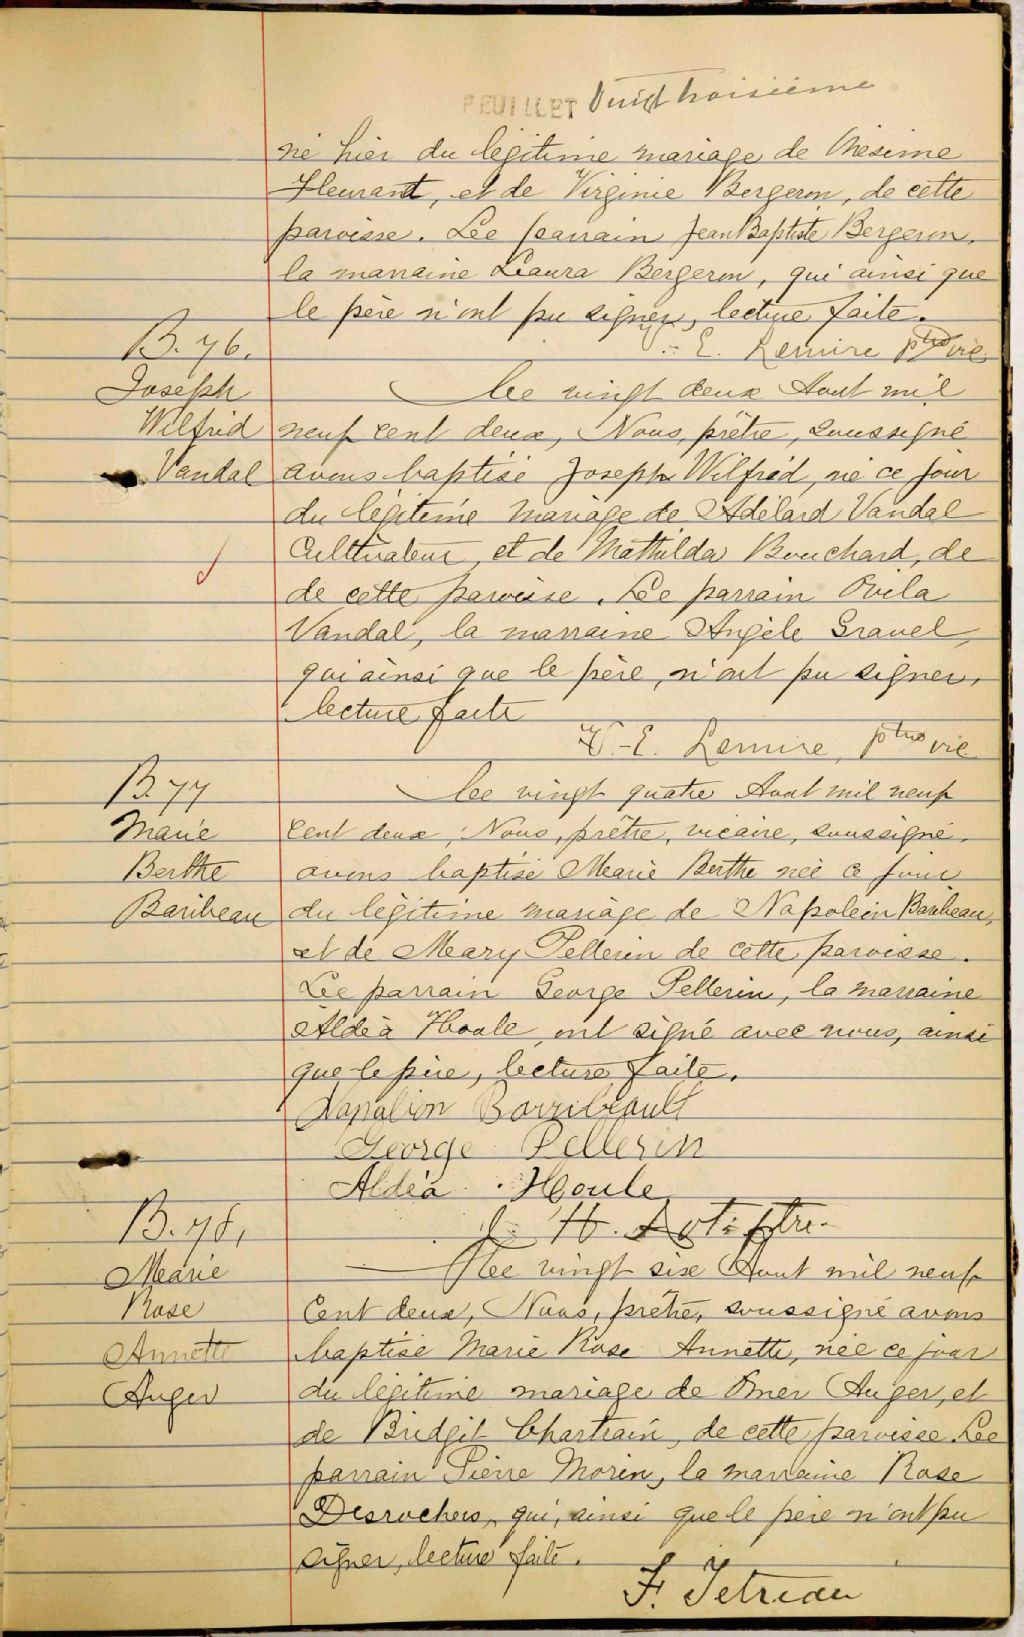 FEUILLET Vingt troisième
né hier du légitime mariage de Onésime
Fleurant, et de Virginie Bergeron, de cette
paroisse. Le parrain Jean Baptiste Bergeron,
la marraine Laura Bergeron, qui ainsi que
le père n'ont pu signer, lecture faite.
E. Lemire ptre vic
B. 76.
Joseph
Wilfrid
Vandal
Le vingt deux Aout mil
neuf cent deux, Nous, prêtre, soussigné
avons baptisé Joseph Wilfrid, né ce jour
du légitime mariage de Adélard Vandal
Cultivateur, et de Mathilda Bouchard, de
de cette paroisse. Le parrain Ovila
Vandal, la marraine Angèle Gravel,
qui ainsi que le père, n'ont pu signer,
lecture faite
V.-E. Lemire, ptre vic
B. 77
Marie
Berthe
Baribeau
Le vingt quatre Aout mil neuf
cent deux, Nous, prêtre, vicaire, soussigné,
avons baptisé Marie Berthe née ce jour
du légitime mariage de Napoléon Baribeau,
et de Mary Pellerin de cette paroisse.
Le parrain George Pellerin, la marraine
Aldéa Houle, ont signé avec nous, ainsi
que le père, lecture faite.
Napolion Barribeault
George Pellerin
Aldéa Houle
J. H. ptre.
B. 78,
Marie
Rose
Annette
Auger
Le vingt six Aout mil neuf
Cent deux, Nous, prêtre, soussigné avons
baptisé Marie Rose Annette, née ce jour
du légitime mariage de Omer Auger, et
de Bridgit Chartrain, de cette paroisse. Le
parrain Pierre Morin, la marraine Rose
Desrochers, qui, ainsi que le père n'ont pu
signer, lecture faite.
F. Tétreau